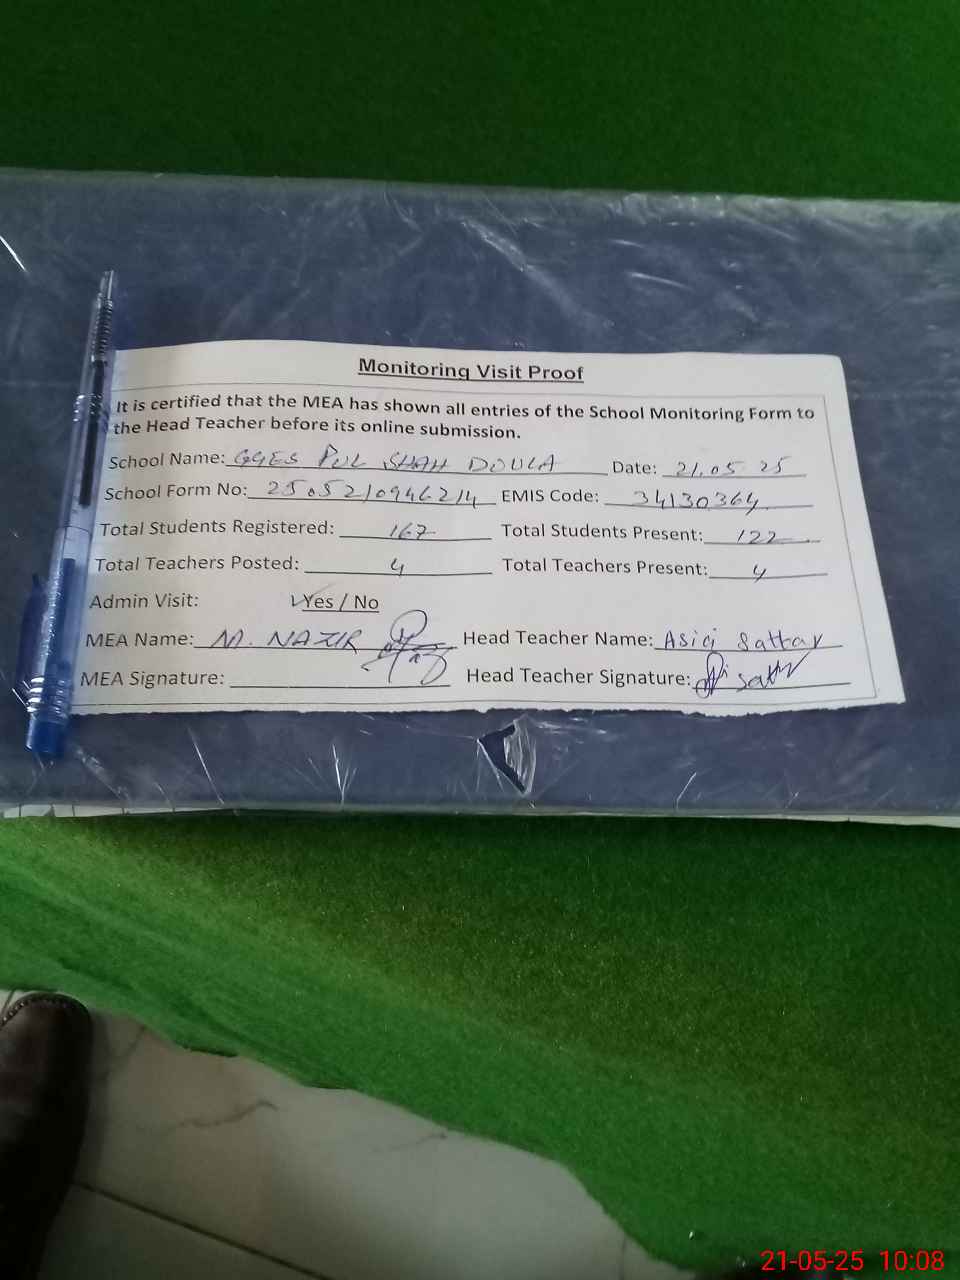 Monitoring Visit Proof
It is certified that the MEA has shown all entries of the School Monitoring Form to
the Head Teacher before its online submission.
School Name: GGES PUL SHAH DOULA Date: 21.05.25
School Form No: 2505210946214 EMIS Code: 34130364
Total Students Registered: 167 Total Students Present: 122
Total Teachers Posted: 4 Total Teachers Present: 4
Admin Visit: Yes / No
MEA Name: M. NAZIR Head Teacher Name: Sattar
MEA Signature: Head Teacher Signature:
21-05-25 10:08